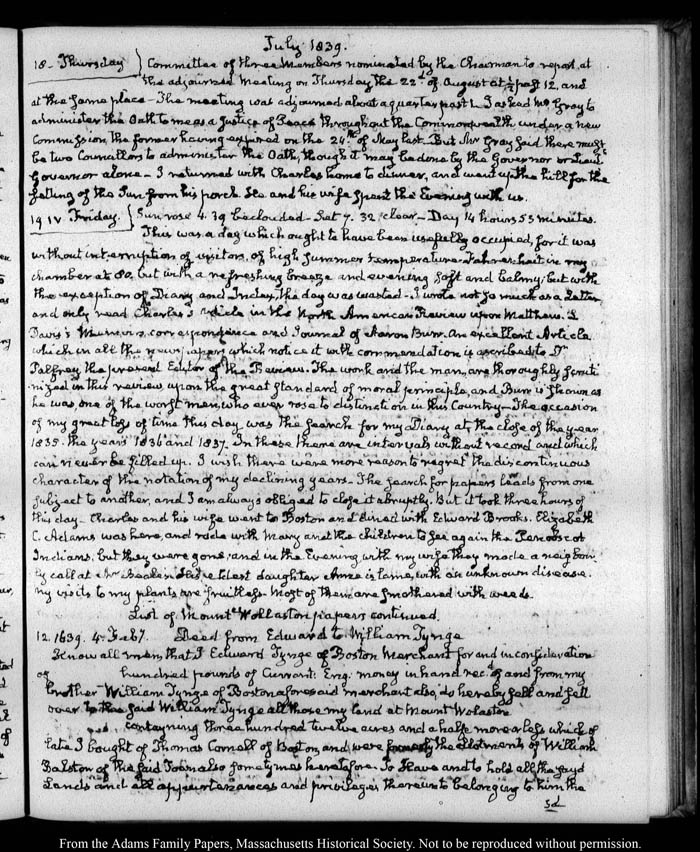 July 1839.
18. Thursday } Committee of three Members nominated by the Chairman to report at
the adjourned Meeting on Thursday the 22d of August at ½ past 12, and
at the same place – The meeting was adjourned about a quarter past 1. I asked Mr Gray to
administer the Oath to me as a Justice of Peace throughout the Commonwealth under a new
Commission the former having expired on the 24th of May last. But Mr Gray said there must
be two Councillors to administer the Oath, though it may be done by the Governor or Lieut
Governor alone – I returned with Charles home to dinner, and went up the hill for the
setting of the Sun from his porch. He and his wife spent the Evening with us.
19 IV. Friday. } Sun rose 4. 39 beclouded – Set 7. 32. clear – Day 14 hours 53 minutes.
This was a day which ought to have been usefully occupied, for it was
without interruption of visitors, of high summer temperature Fahrenheit in my
chamber at 80, but with a refreshing breeze and evening soft and balmy; but with
the exception of Diary and Index, the day was wasted – I wrote not so much as a Letter
and only read Charles's article in the North American Review upon Matthew L
Davis's Memoirs, correspondence and Journal of Aaron Burr. An excellent Article
which in all the newspapers which notice it with commendation is ascribed to Dr
Palfrey the present Editor of the Review. The work and the man, are thoroughly scruti
nized in this review, upon the great standard of moral principle, and Burr is shown as
he was, one of the worst men, who ever rose to distinction in this Country – The occasion
of my great loss of time this day was the search for my Diary at the close of the year
1835. the years 1836 and 1837. In these there are intervals without record and which
can never be filled up. I wish there were more reason to regret the discontinuous
character of the notation of my declining years – The search for papers leads from one
subject to another, and I am always obliged to close it abruptly. But it took three hours of
this day – Charles and his wife went to Boston and dined with Edward Brooks. Elizabeth
C. Adams was here, and rode with Mary and the children to see again the Penobscot
Indians, but they were gone; and in the Evening with my wife they made a neighbour
ly call at Mr Beale's. His eldest daughter Anne is lame, with an unknown disease.
My visits to my plants are fruitless. Most of them are smothered with weeds.
List of Mount Wollaston papers continued.
12. 1639. 4. Feb7. Deed from Edward to William Tynge
Know all men that I Edward Tynge of Boston Merchant for and in consideration
of hundred pounds of Currant: Eng: money in hand recd of and from my
brother William Tynge of Boston aforesaid merchant also, do hereby sell and sett
over to the said William Tynge all those my land at Mount Wolaston
containing three hundred twelve acres and a halfe more or less which of
late I bought of Thomas Cornall of Boston, and were formerly the allotments of William
Balston of the said Town also sometymes heretofore. To Have and to hold all the sayd
Lands and all appurtenances and privileges thereunto belonging to him the
sd
From the Adams Family Papers, Massachusetts Historical Society. Not to be reproduced without permission.